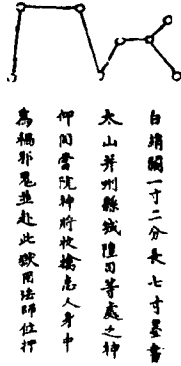 白絹闊一寸二分長七寸墨書
太山并州縣城隍司等處之神
仰関當院神將收擒患人身中
為禍邪鬼並赴此獄法師位押